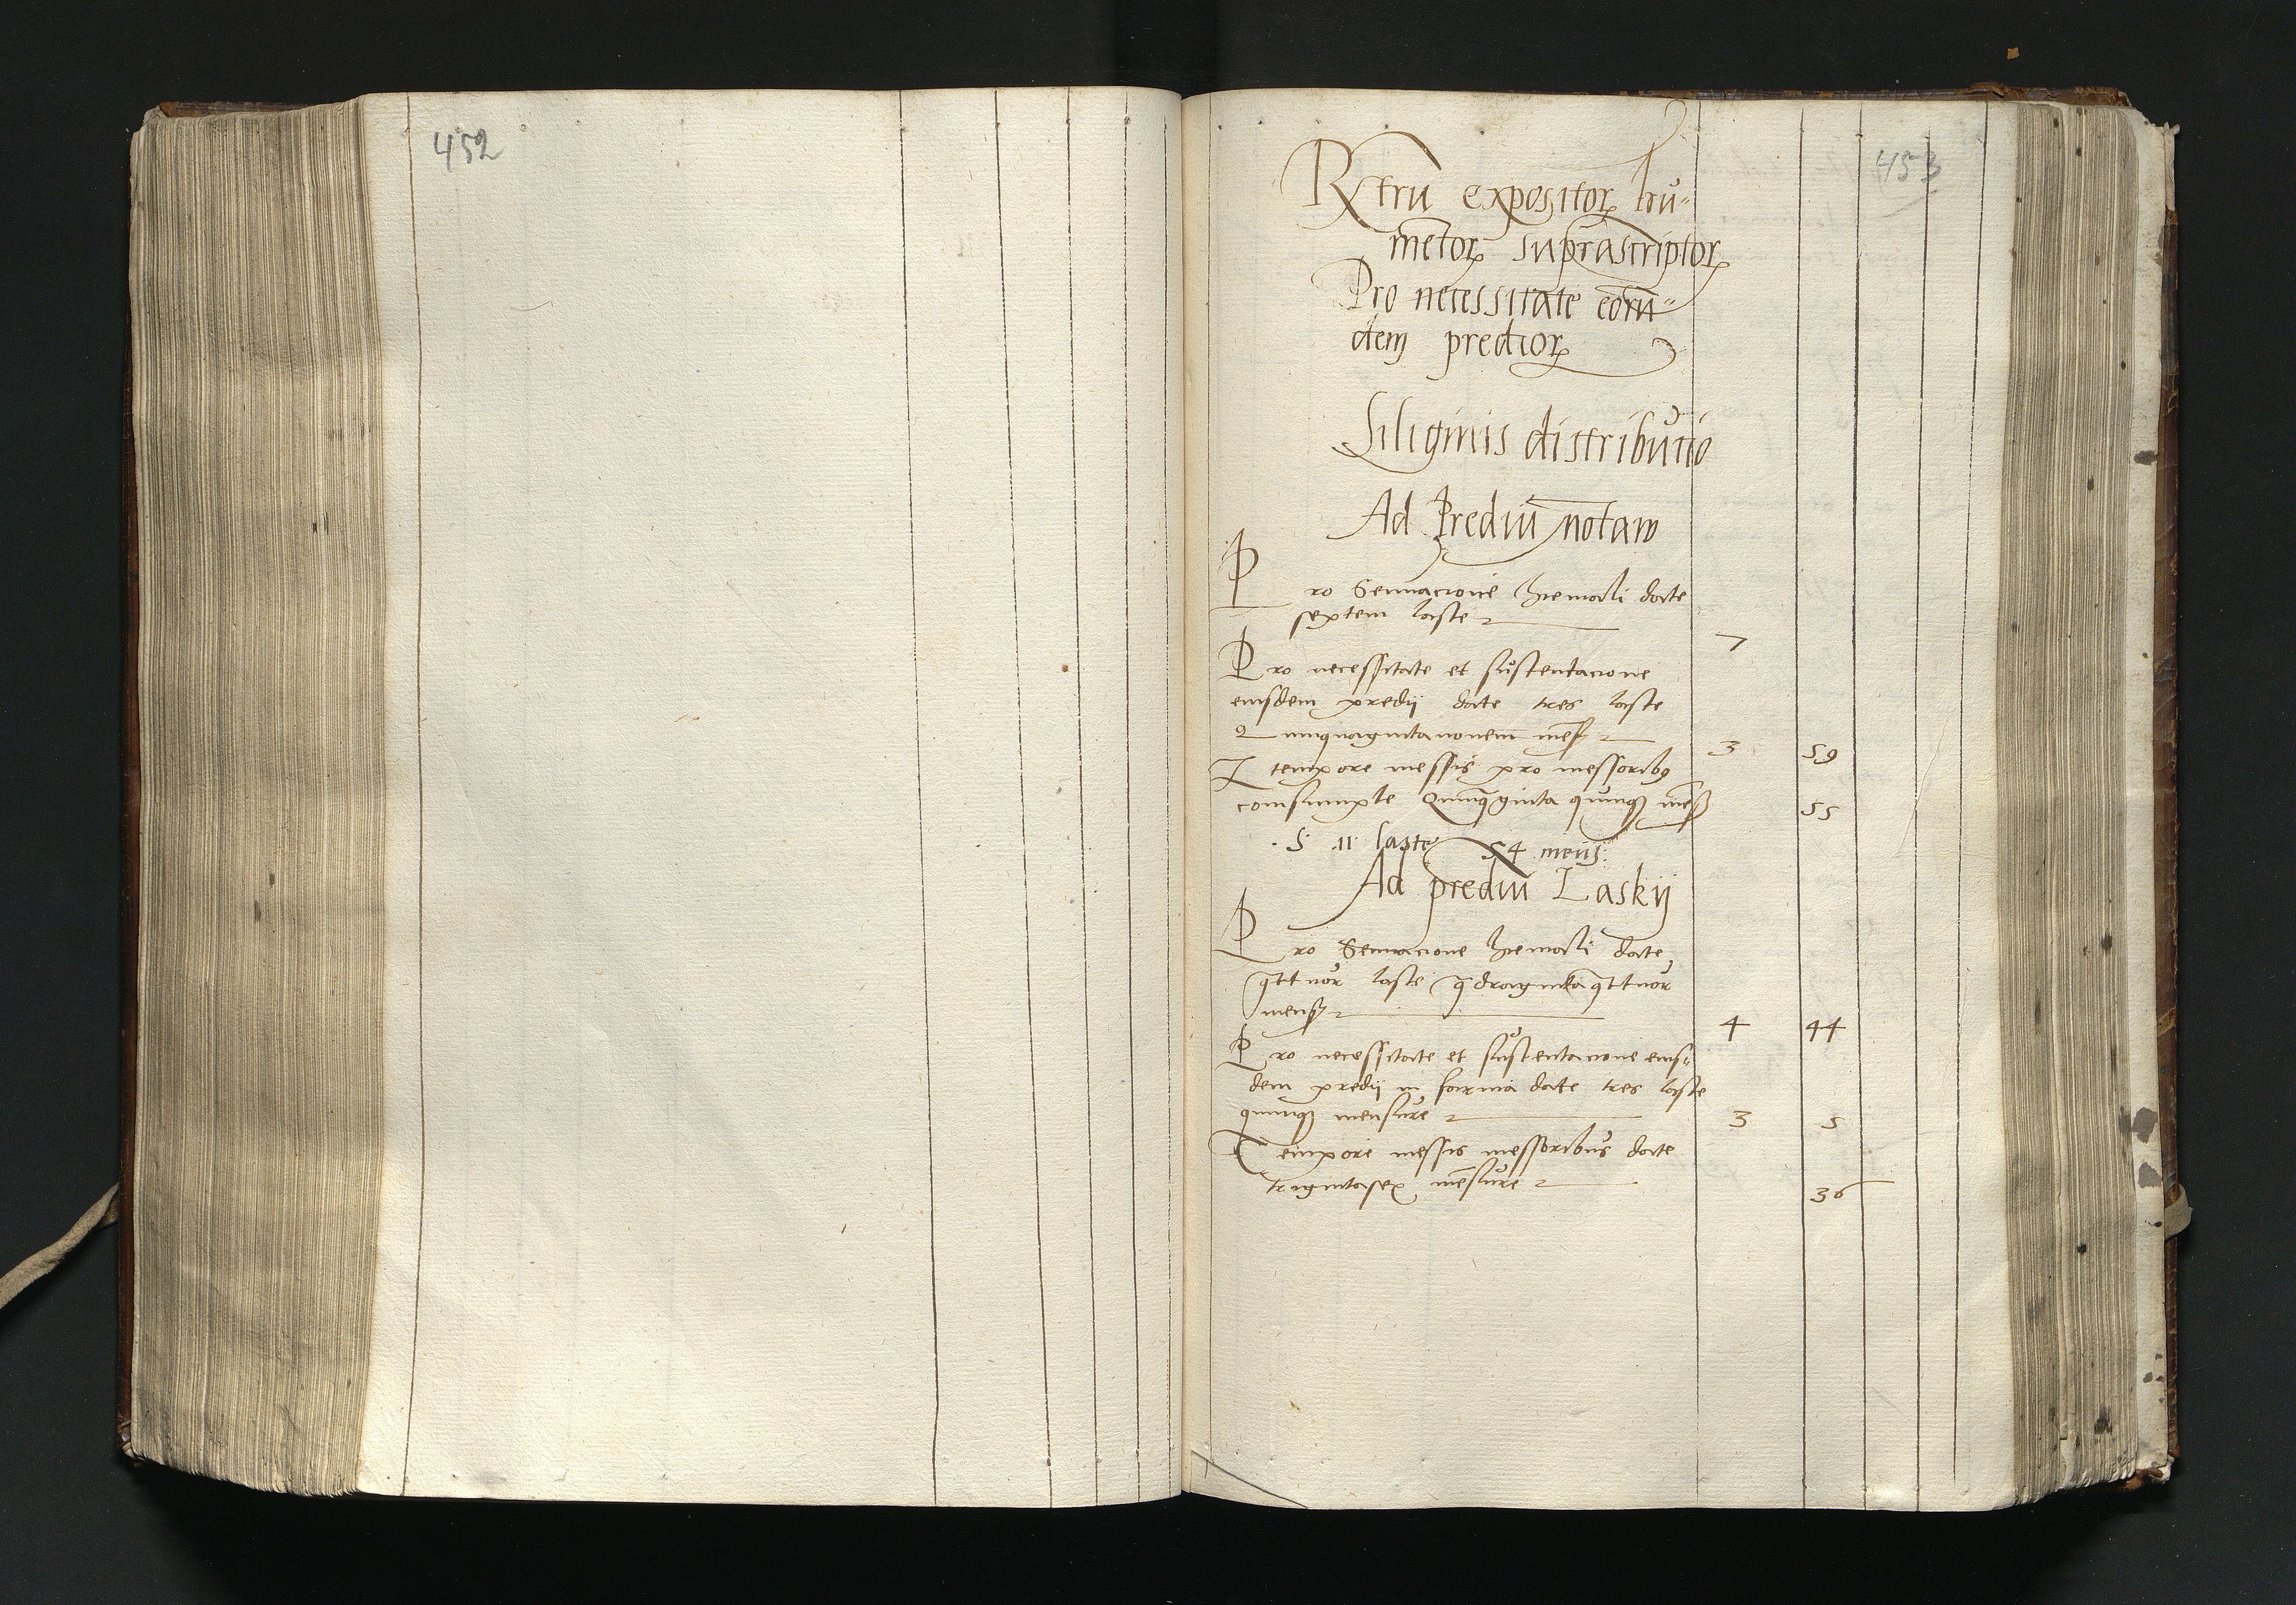 452
453
Rstrũ expositoꝝ fru⸗
mẽtoꝝ suprascriptoꝝ
Pro necessitate eorũ⸗
dem predioꝝ
Siliginis distributio
Ad Prediũ notarw
Pro Seminacione hiemali date
septem laste
7
Pro necessitate et sustentacione
eiusdem predii date tres laste
Quinquagintanouem mens
3 59
Item tempore messis pro messoribꝰ
consumpte Quinqᷓginta quinqꝫ mens
55
S 11 laste 54 mens:
Ad prediũ Laskij
Pro Seminacione hiemali date
qᷓttuor laste qᷓdragintaqᷓttuor
mens
4 44
Pro necessitate et sustentacione eius⸗
dem predii in farina date tres laste
quinqꝫ mensure
3 5
Tempore messis messoribus date
trigintasex mẽsure
36